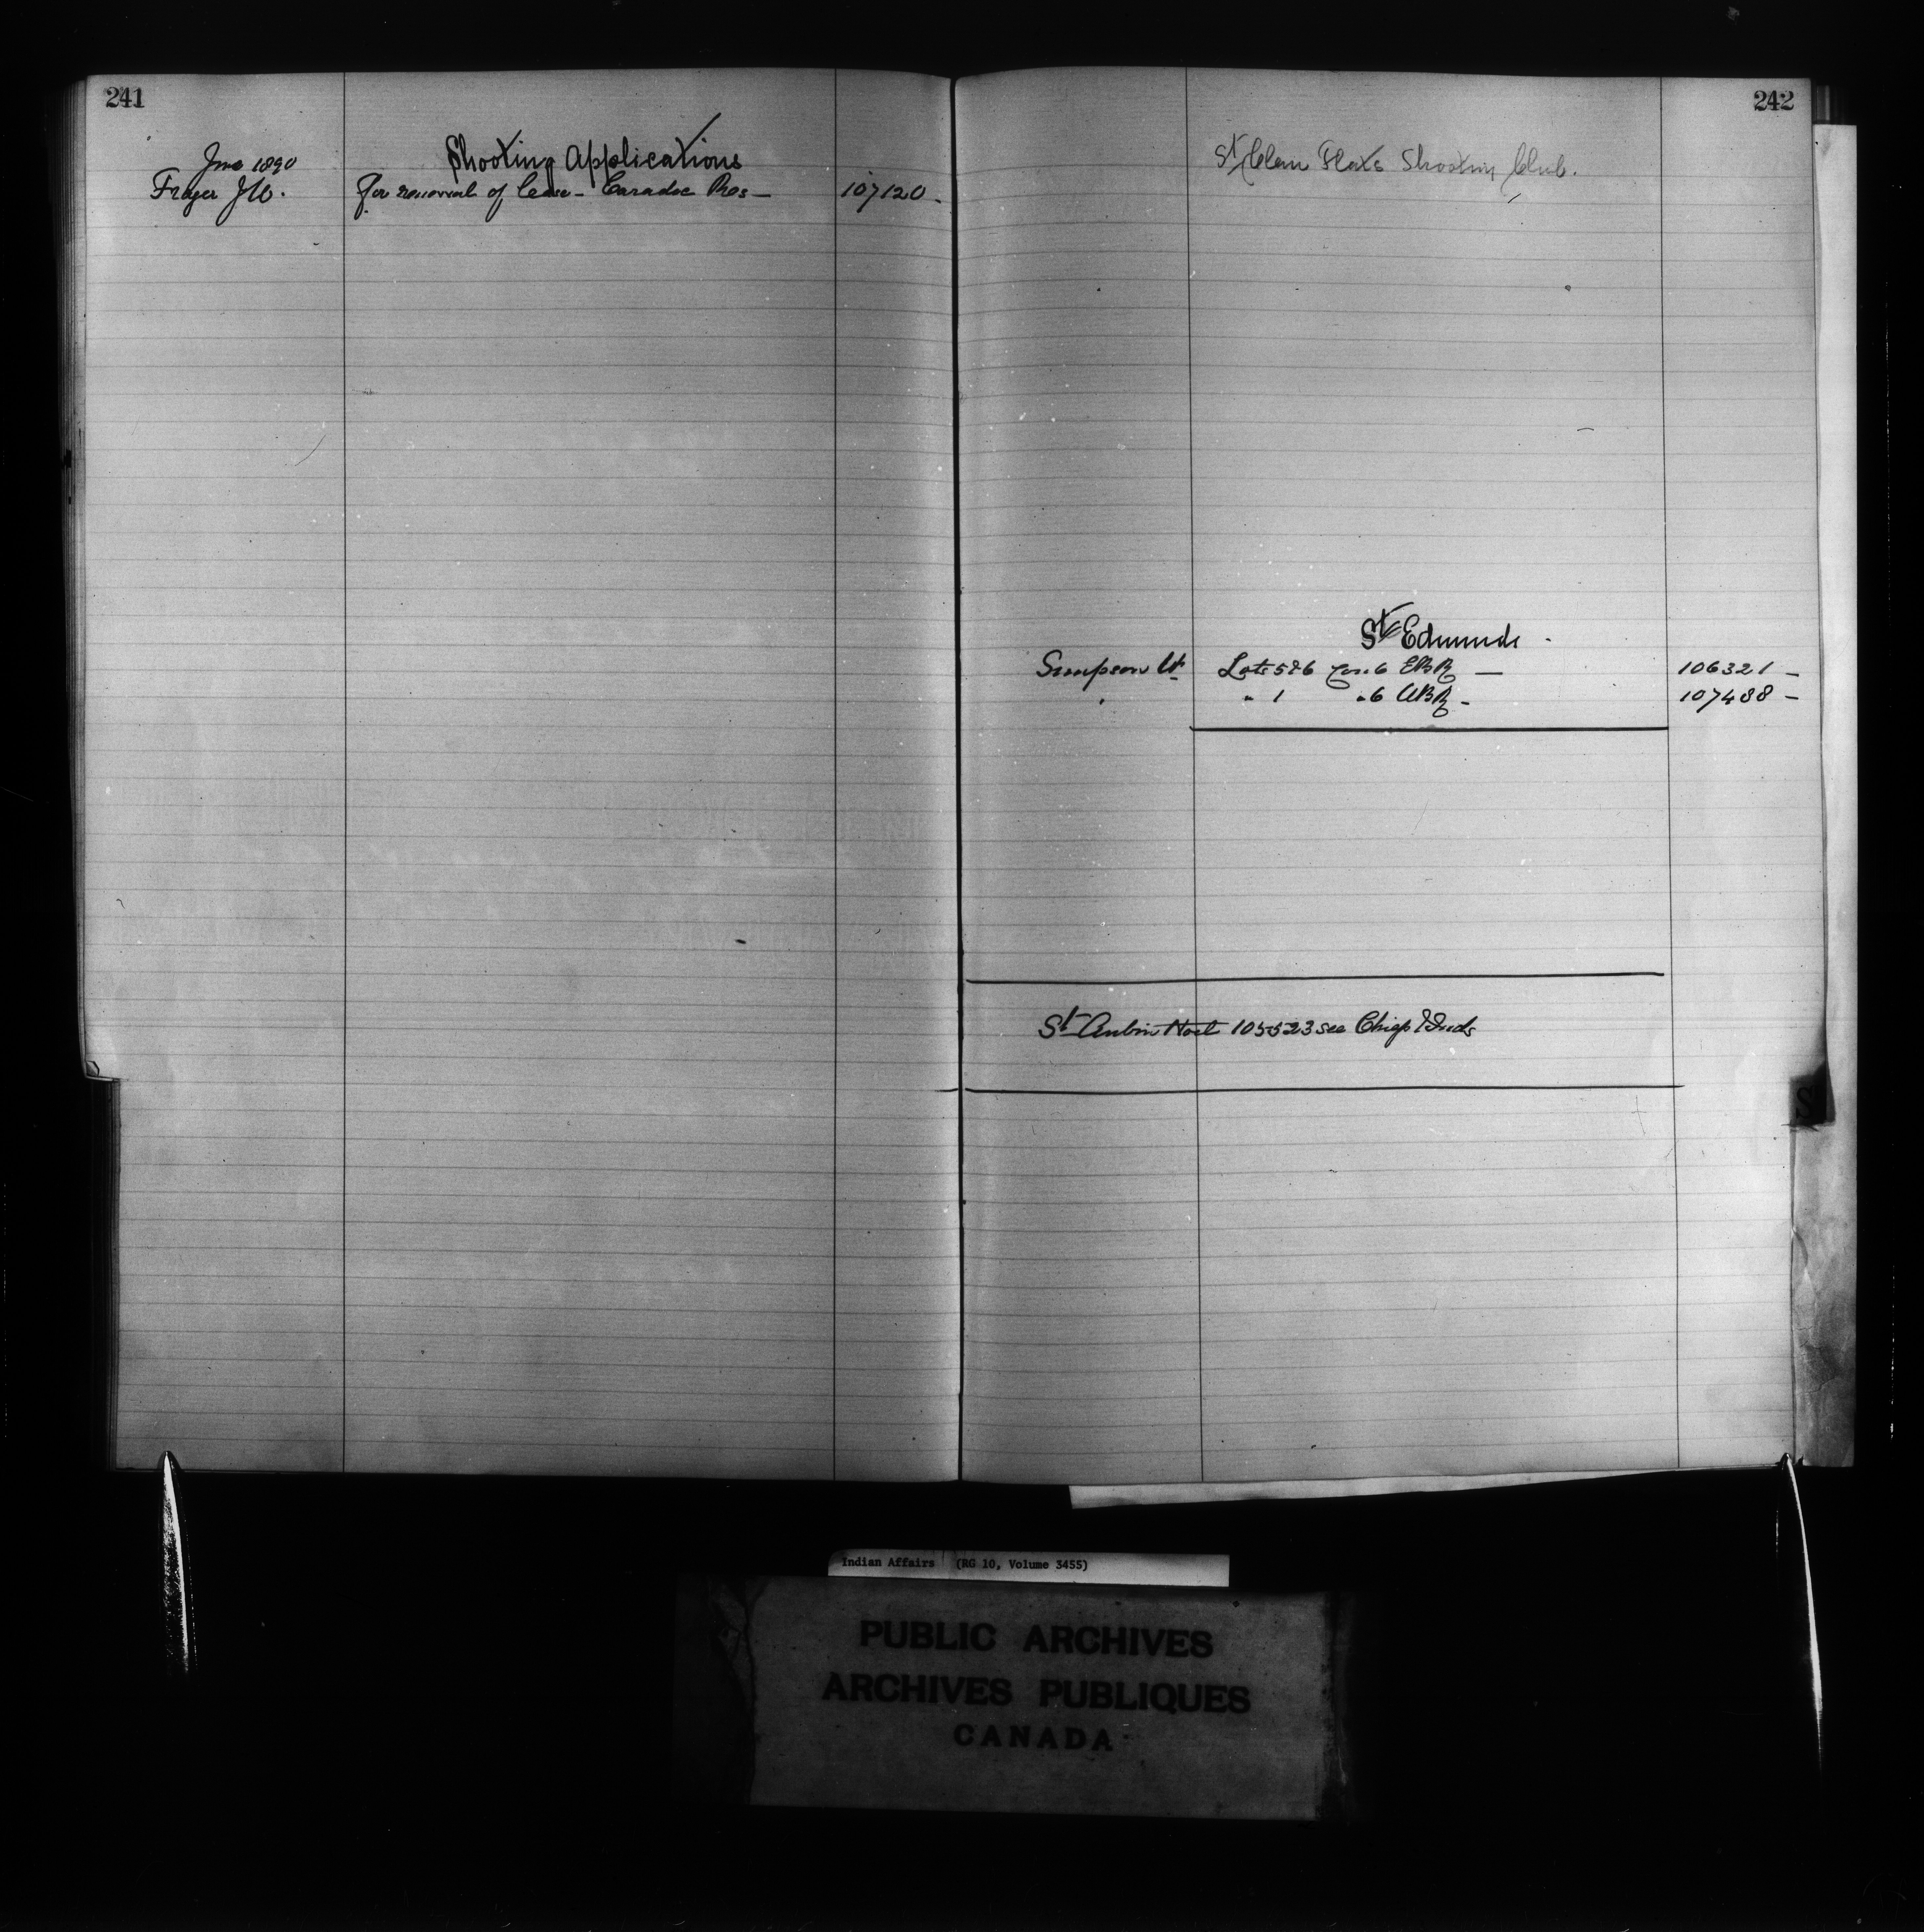 241
Shooting Applications
June 1890
Frazer J W. For renewal of lease - Caradoc Res - 107120 -
242
St Clair Flats Shooting Club.
St Edmunds -
Simpson W Lots 5 & 6 Con. 6 EBR - 106321 -
" " 1 " 6 WBR - 107488 -
St Aubin Noel 105523 see Chiefs & Inds
S
Indian Affairs (RG 10, Volume 3455)
PUBLIC ARCHIVES
ARCHIVES PUBLIQUES
CANADA